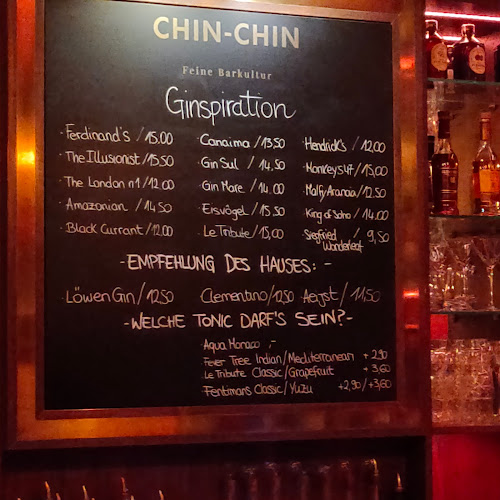 CHIN-CHIN
Feine Barkultur
Ginspiration
· Ferdinand's / 15.00
· The Illusionist / 15.50
· The London n1 / 12.00
· Amazonian / 14,50
· Black Currant / 12.00
· Canaima / 13,50
· Gin Sul / 14,50
· Gin Mare / 14.00
· Eisvögel / 15.50
· Le Tribute / 15,00
· Hendrick's / 12,00
· Monkey's 47 / 15,00
· Malfy Arancia / 12.50
· King of Soho / 14.00
· Siegfried Wonderleaf / 9,50
- EMPFEHLUNG DES HAUSES: -
· Löwen Gin / 12,50 Clementino / 12,50 Aeijst / 11,50
- WELCHE TONIC DARF'S SEIN? -
· Aqua Monaco ,-
· Fever Tree Indian/Mediterranean + 2,90
· Le Tribute Classic/Grapefruit + 3,60
· Fentimans Classic/Yuzu +2,90/+3,60